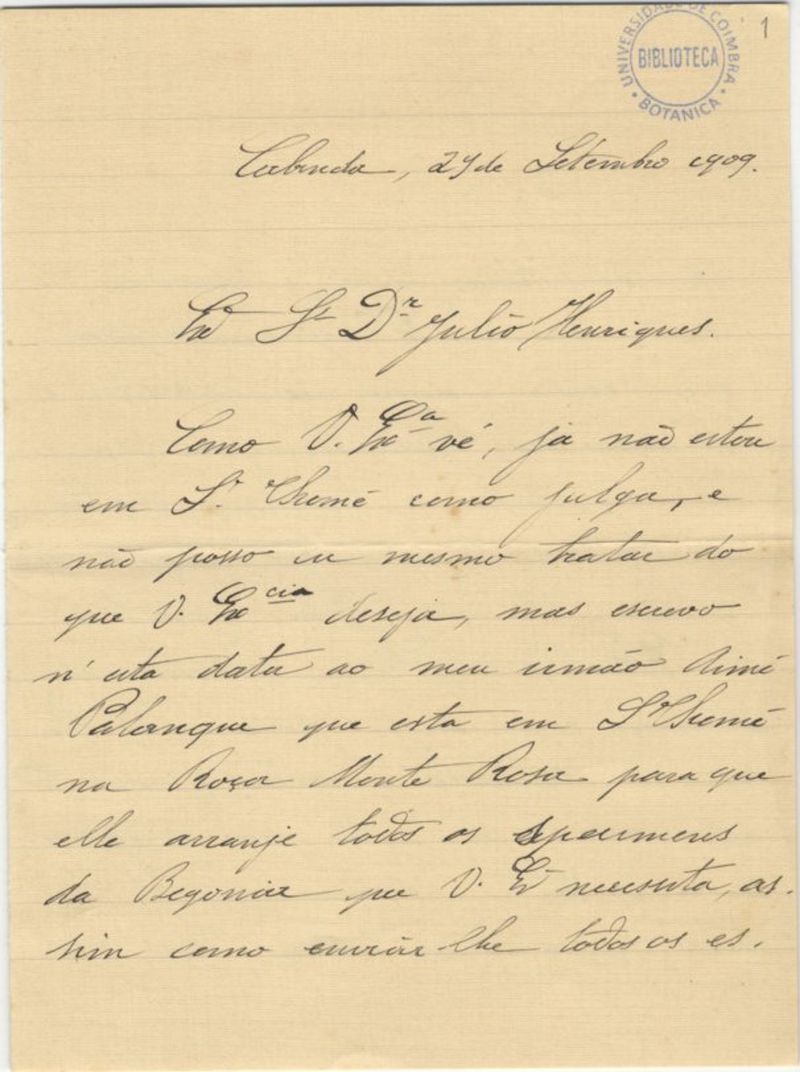 UNIVERSIDADE DE COIMBRA
BIBLIOTECA
BOTANICA
1
Cabinda, 27 de Setembro 1909.
Exº Sr Dr Julio Henriques.
Como V. Exª vê, ja não estou
em Sº Thomé como julga, e
não posso eu mesmo tratar do
que V. Excia deseja, mas escrevo
n'esta data ao meu irmão Aimé
Palanque que esta em Sº Thomé
na Roça Monte Rosa para que
elle arranje todos os specimens
da Begonia que V. Exª necessita, as-
sim como enviar lhe todos os es-